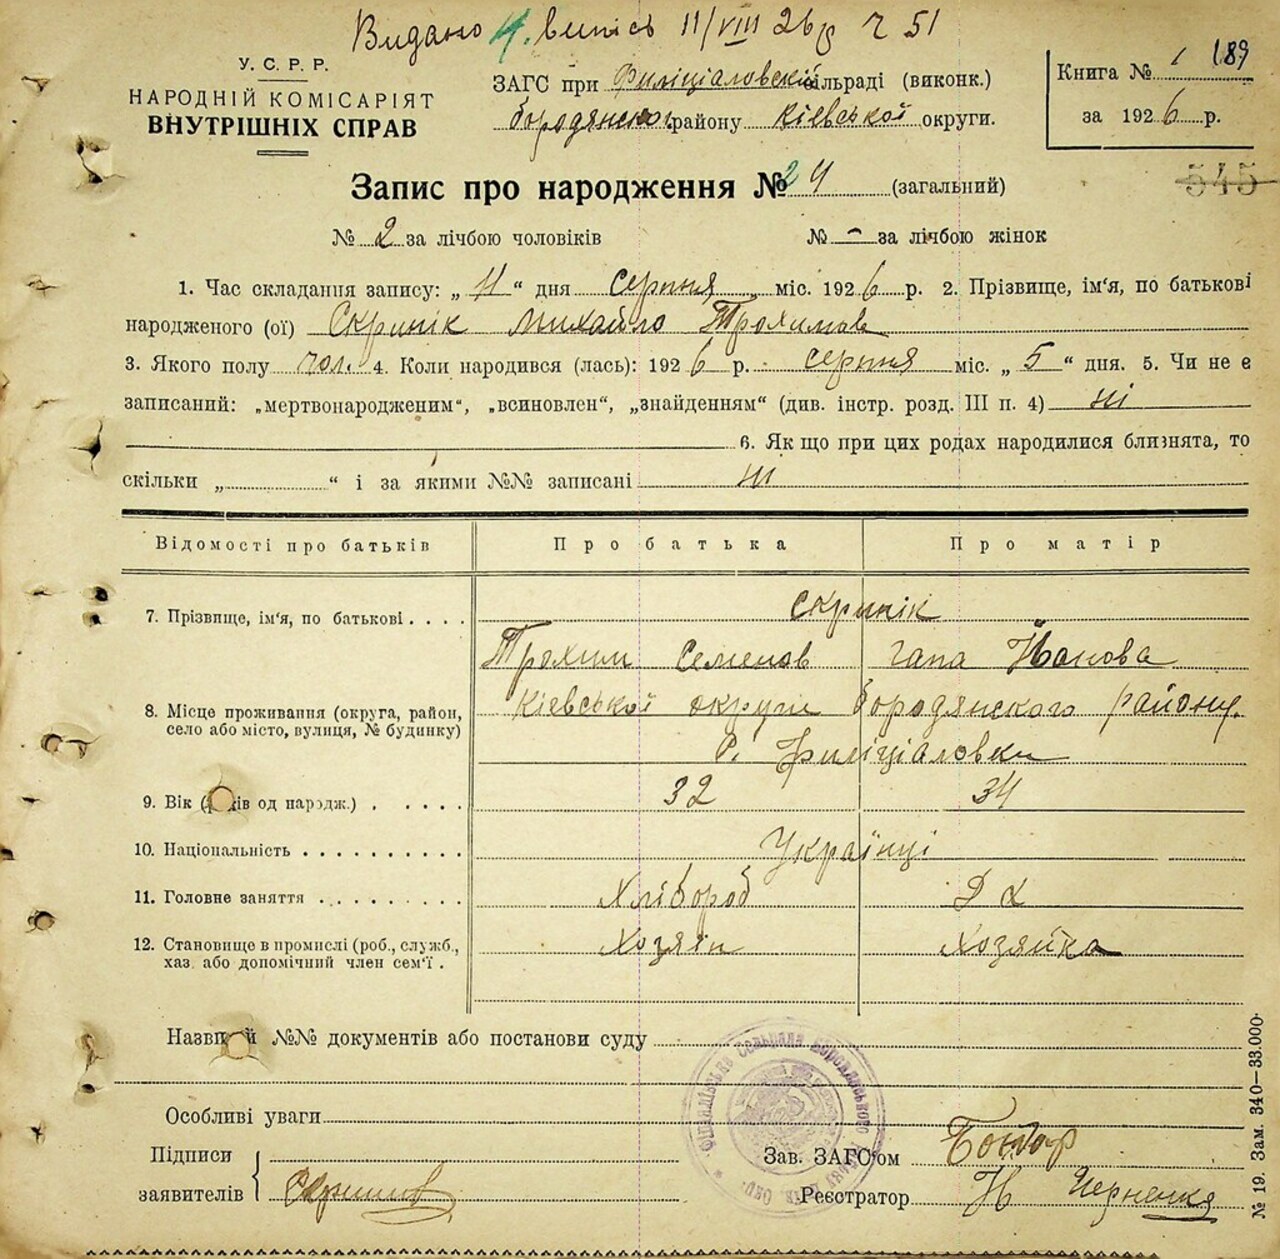 Видано 4. випісь 11/VIII 26 р ч 51
У. С. Р. Р.
НАРОДНІЙ КОМІСАРІЯТ
ВНУТРІШНІХ СПРАВ
ЗАГС при Филіціаловській сільраді (виконк.)
бородянского району Кіевської округи.
Книга № 1 189
за 1926 р.
545
Запис про народження № 24 (загальний)
№ 2 за лічбою чоловіків № - за лічбою жінок
1. Час складання запису: „ 11 “ дня серпня міс. 1926 р. 2. Прізвище, ім'я, по батькові
народженого (ої) Скринік Михайло Трохимов
3. Якого полу чол. 4. Коли народився (лась): 1926 р. серпня міс. „ 5 “ дня. 5. Чи не є
записаний: „мертвонародженим“, „всиновлен“, „знайденням“ (див. інстр. розд. III п. 4) ні
6. Як що при цих родах народилися близнята, то
скільки „ “ і за якими №№ записані ні
Відомості про батьків Про батька Про матір
7. Прізвище, ім'я, по батькові . . . . Скринік
Трохим Семенов Гапа Йванова
8. Місце проживання (округа, район, село або місто, вулиця, № будинку) Кіевської округи бородянского району.
с. Филіціаловки
9. Вік (років од народж.) . . . . . 32 34
10. Національність . . . . . . . . . . Українці
11. Головне заняття . . . . . . . . . Хлібороб Д х
12. Становище в промислі (роб., служб., хаз. або допомічний член сем'ї . Хозяін Хозяйка
Назви й №№ документів або постанови суду
Особливі уваги
Підписи
заявителів Скринік
Зав. ЗАГС'ом Бондар
Реєстратор Н Черненка
№ 19. Зам. 340—33.000